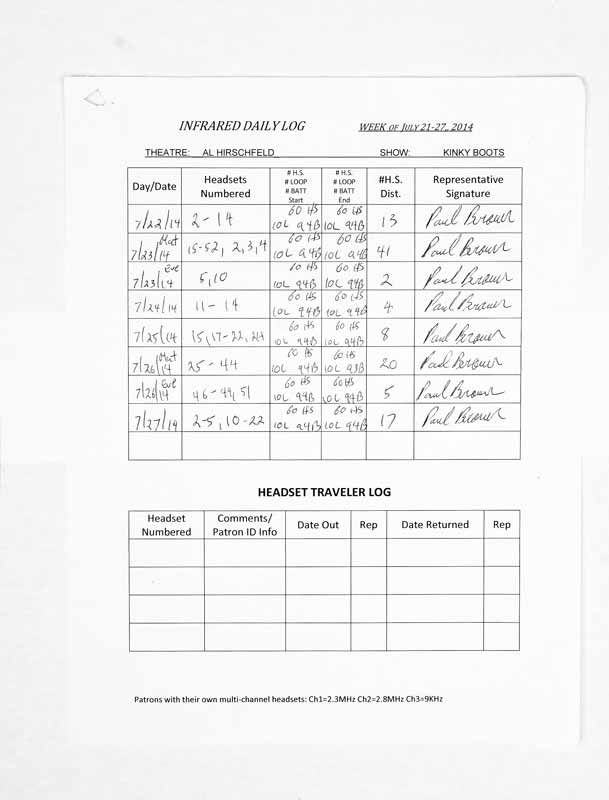 INFRARED DAILY LOG WEEK OF JULY 21-27, 2014
THEATRE: AL HIRSCHFELD SHOW: KINKY BOOTS
Day/Date Headsets Numbered # H.S. # LOOP # BATT Start # H.S. # LOOP # BATT End #H.S. Dist. Representative Signature
7/22/14 2-14 60 HS 10L 94B 60 HS 10L 94B 13 Paul Brown
7/23/14 Mat 15-52, 2,3,4 60 HS 10L 94B 60 HS 10L 94B 41 Paul Brown
7/23/14 Eve 5,10 60 HS 10L 94B 60 HS 10L 94B 2 Paul Brown
7/24/14 11-14 60 HS 10L 94B 60 HS 10L 94B 4 Paul Brown
7/25/14 15,17-22,24 60 HS 10L 94B 60 HS 10L 94B 8 Paul Brown
7/26/14 Mat 25-44 60 HS 10L 94B 60 HS 10L 93B 20 Paul Brown
7/26/14 Eve 46-49,51 60 HS 10L 94B 60HS 10L 94B 5 Paul Brown
7/27/14 2-5,10-22 60 HS 10L 94B 60 HS 10L 94B 17 Paul Brown
HEADSET TRAVELER LOG
Headset Numbered Comments/ Patron ID Info Date Out Rep Date Returned Rep
Patrons with their own multi-channel headsets: Ch1=2.3MHz Ch2=2.8MHz Ch3=9KHz